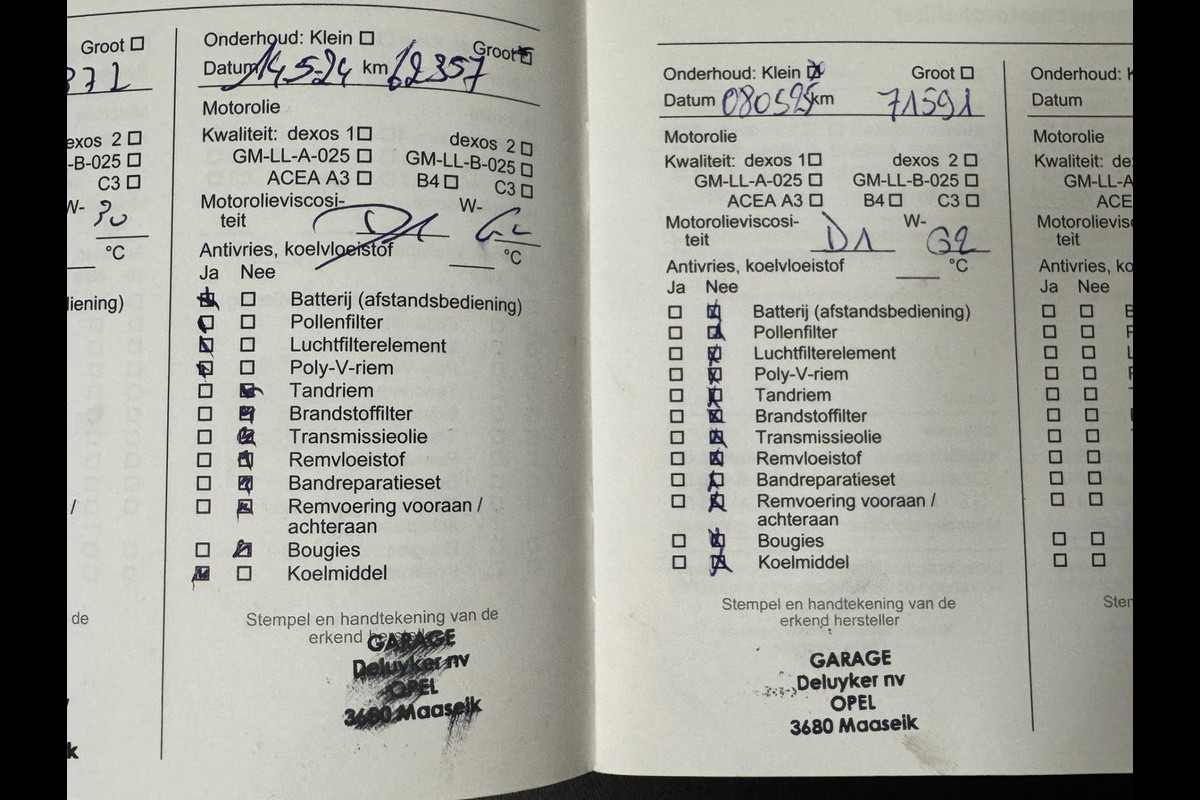 Groot
371
exos 2
-B-025
C3
W- 30
°C
liening)
/
de
k
Onderhoud: Klein Groot
Datum 14 5-24 km 62357
Motorolie
Kwaliteit: dexos 1 dexos 2
GM-LL-A-025 GM-LL-B-025
ACEA A3 B4 C3
Motorolieviscosi- W-
teit D1 G2
Antivries, koelvloeistof °C
Ja Nee
Batterij (afstandsbediening)
Pollenfilter
Luchtfilterelement
Poly-V-riem
Tandriem
Brandstoffilter
Transmissieolie
Remvloeistof
Bandreparatieset
Remvoering vooraan /
achteraan
Bougies
Koelmiddel
Stempel en handtekening van de
erkend hersteller
GARAGE
Deluyker nv
OPEL
3680 Maaseik
Onderhoud: Klein Groot
Datum 080525 km 71591
Motorolie
Kwaliteit: dexos 1 dexos 2
GM-LL-A-025 GM-LL-B-025
ACEA A3 B4 C3
Motorolieviscosi- W-
teit D1 G2
Antivries, koelvloeistof °C
Ja Nee
Batterij (afstandsbediening)
Pollenfilter
Luchtfilterelement
Poly-V-riem
Tandriem
Brandstoffilter
Transmissieolie
Remvloeistof
Bandreparatieset
Remvoering vooraan /
achteraan
Bougies
Koelmiddel
Stempel en handtekening van de
erkend hersteller
GARAGE
Deluyker nv
OPEL
3680 Maaseik
Onderhoud: K
Datum
Motorolie
Kwaliteit: de
GM-LL-A
ACE
Motorolievis
teit
Antivries, ko
Ja Nee
B
Ster